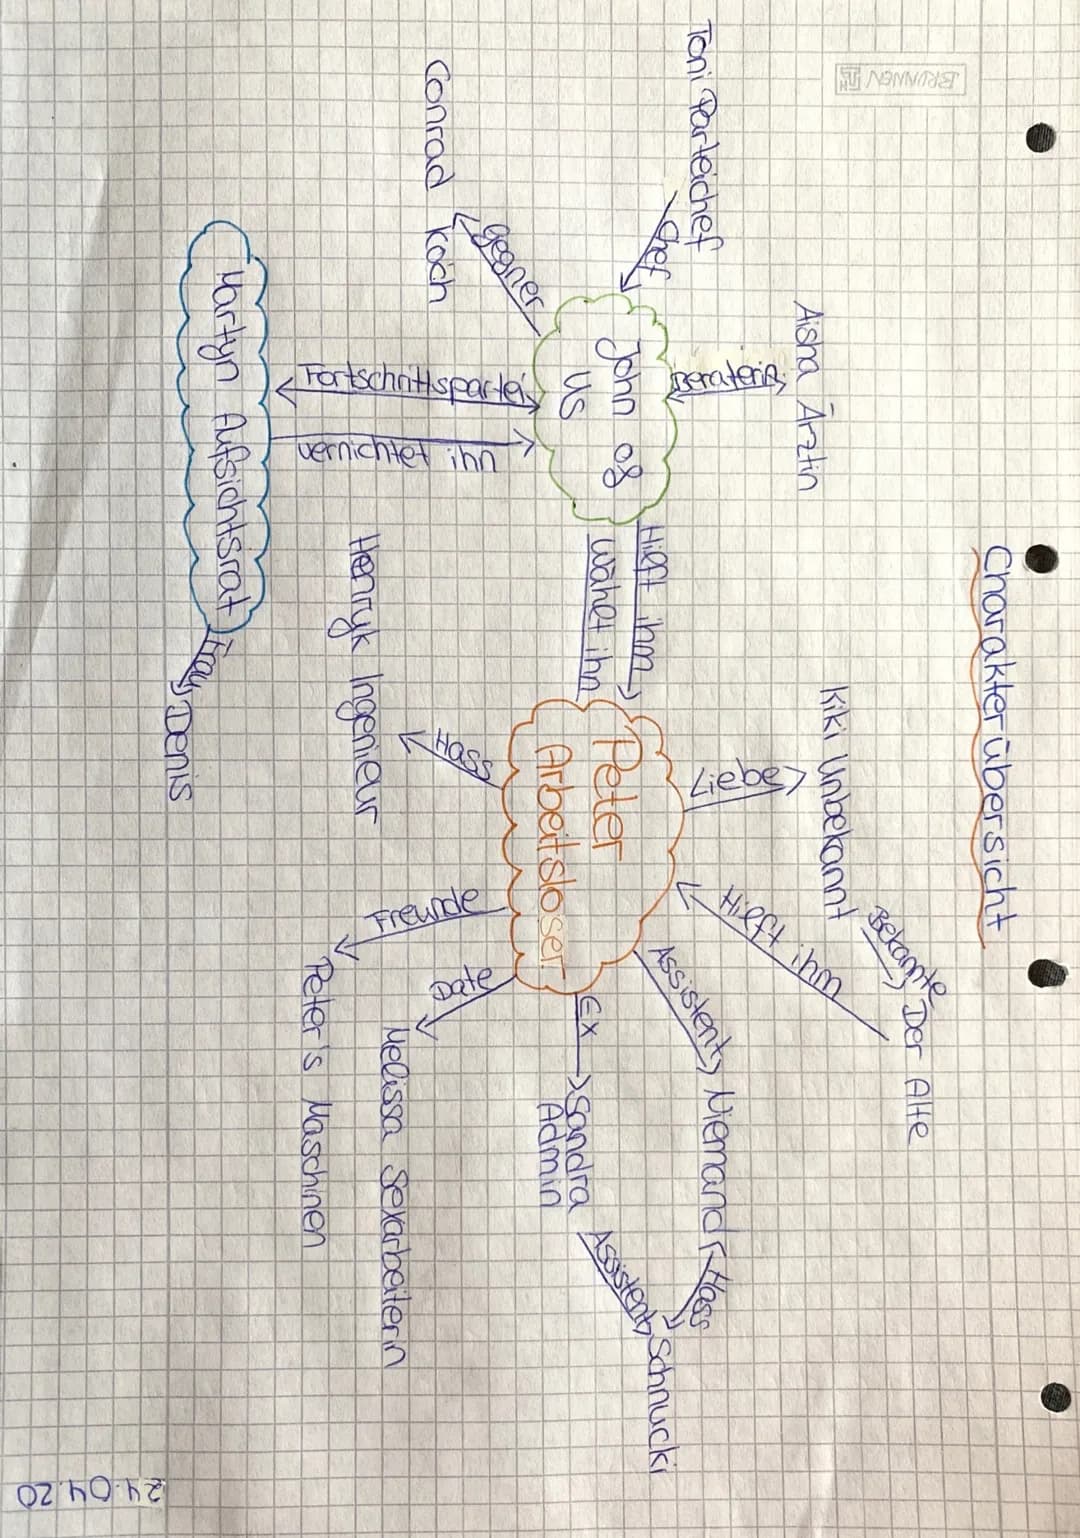 Charakterübersicht
BRUNNEN
Toni Parteichef
Chef
Aisha Ärztin
Beraterin
John of
us
Gegner
Conrad Koch
Fortschrittspartei
vernichtet ihn
Martyn Aufsichtsrat
Frau
Denis
Hilft ihm
Wählt ihn
Peter
Arbeitsloser
Liebe
Kiki Unbekannt
Bekannte
Der Alte
Hilft ihm
Assistent
Niemand
Hass
Schnucki
Assistent
Ex
Sandra
Admin
Date
Melissa Sexarbeiterin
Freunde
Peter's Maschinen
Hass
Henryk Ingenieur
24.04.20